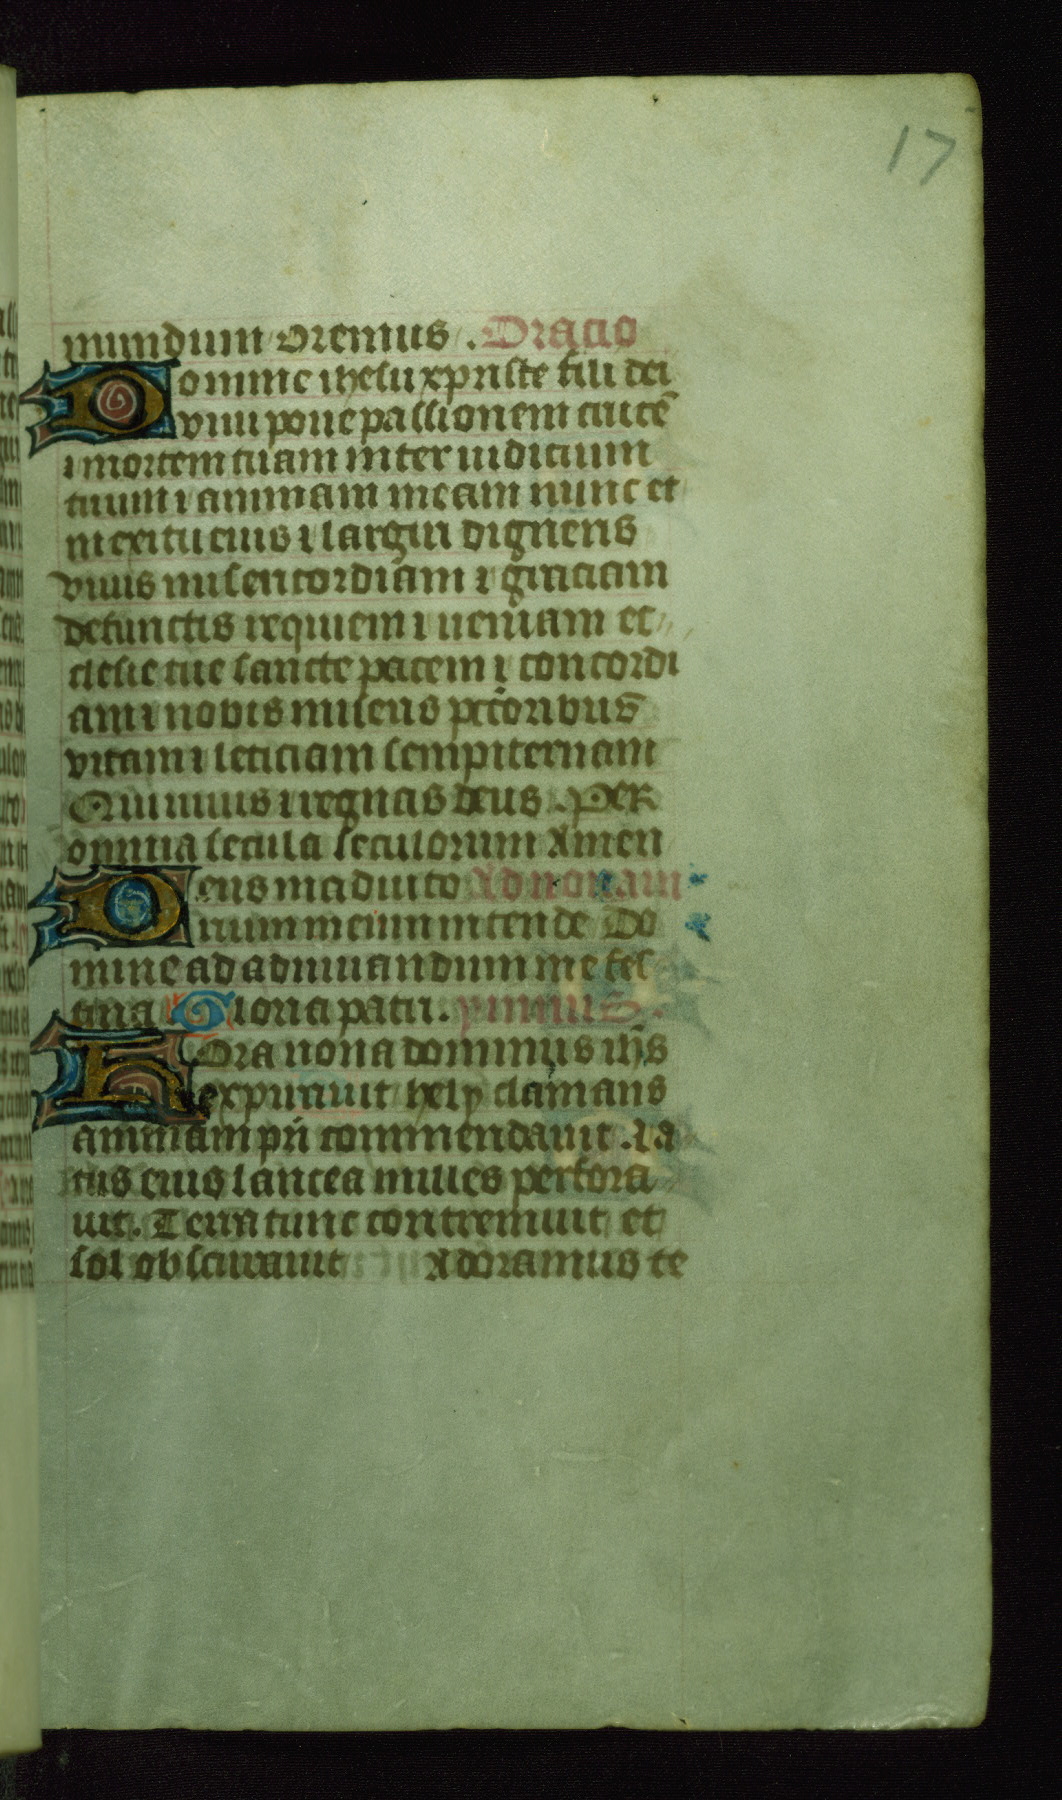 17
mundum oremus. Oracio
Domine ihesu xpriste fili dei
vivi pone passionem crucē
⁊ mortem tuam inter iudicium
tuum ⁊ animam meam nunc et
in exitu eius ⁊ largiri digneris
vivis misericordiam ⁊ graciam
defunctis requiem ⁊ veniam et
clesie tue sancte pacem ⁊ concordi
am ⁊ nobis miseris pctoribus
vitam ⁊ leticiam sempiternam
Qui vivis ⁊ regnas deus. Per
omnia secula seculorum Amen
Deus in adiuto Ad nonam
rium meum intende Do
mine ad adiuvandum me fes
tina Gloria patri. ymnus.
Hora nona dominus ihs
expiravit hely clamans
animam pri commendavit. la
tus eius lancea miles perfora
vit. Terra tunc contremuit et
sol obscuravit Adoramus te